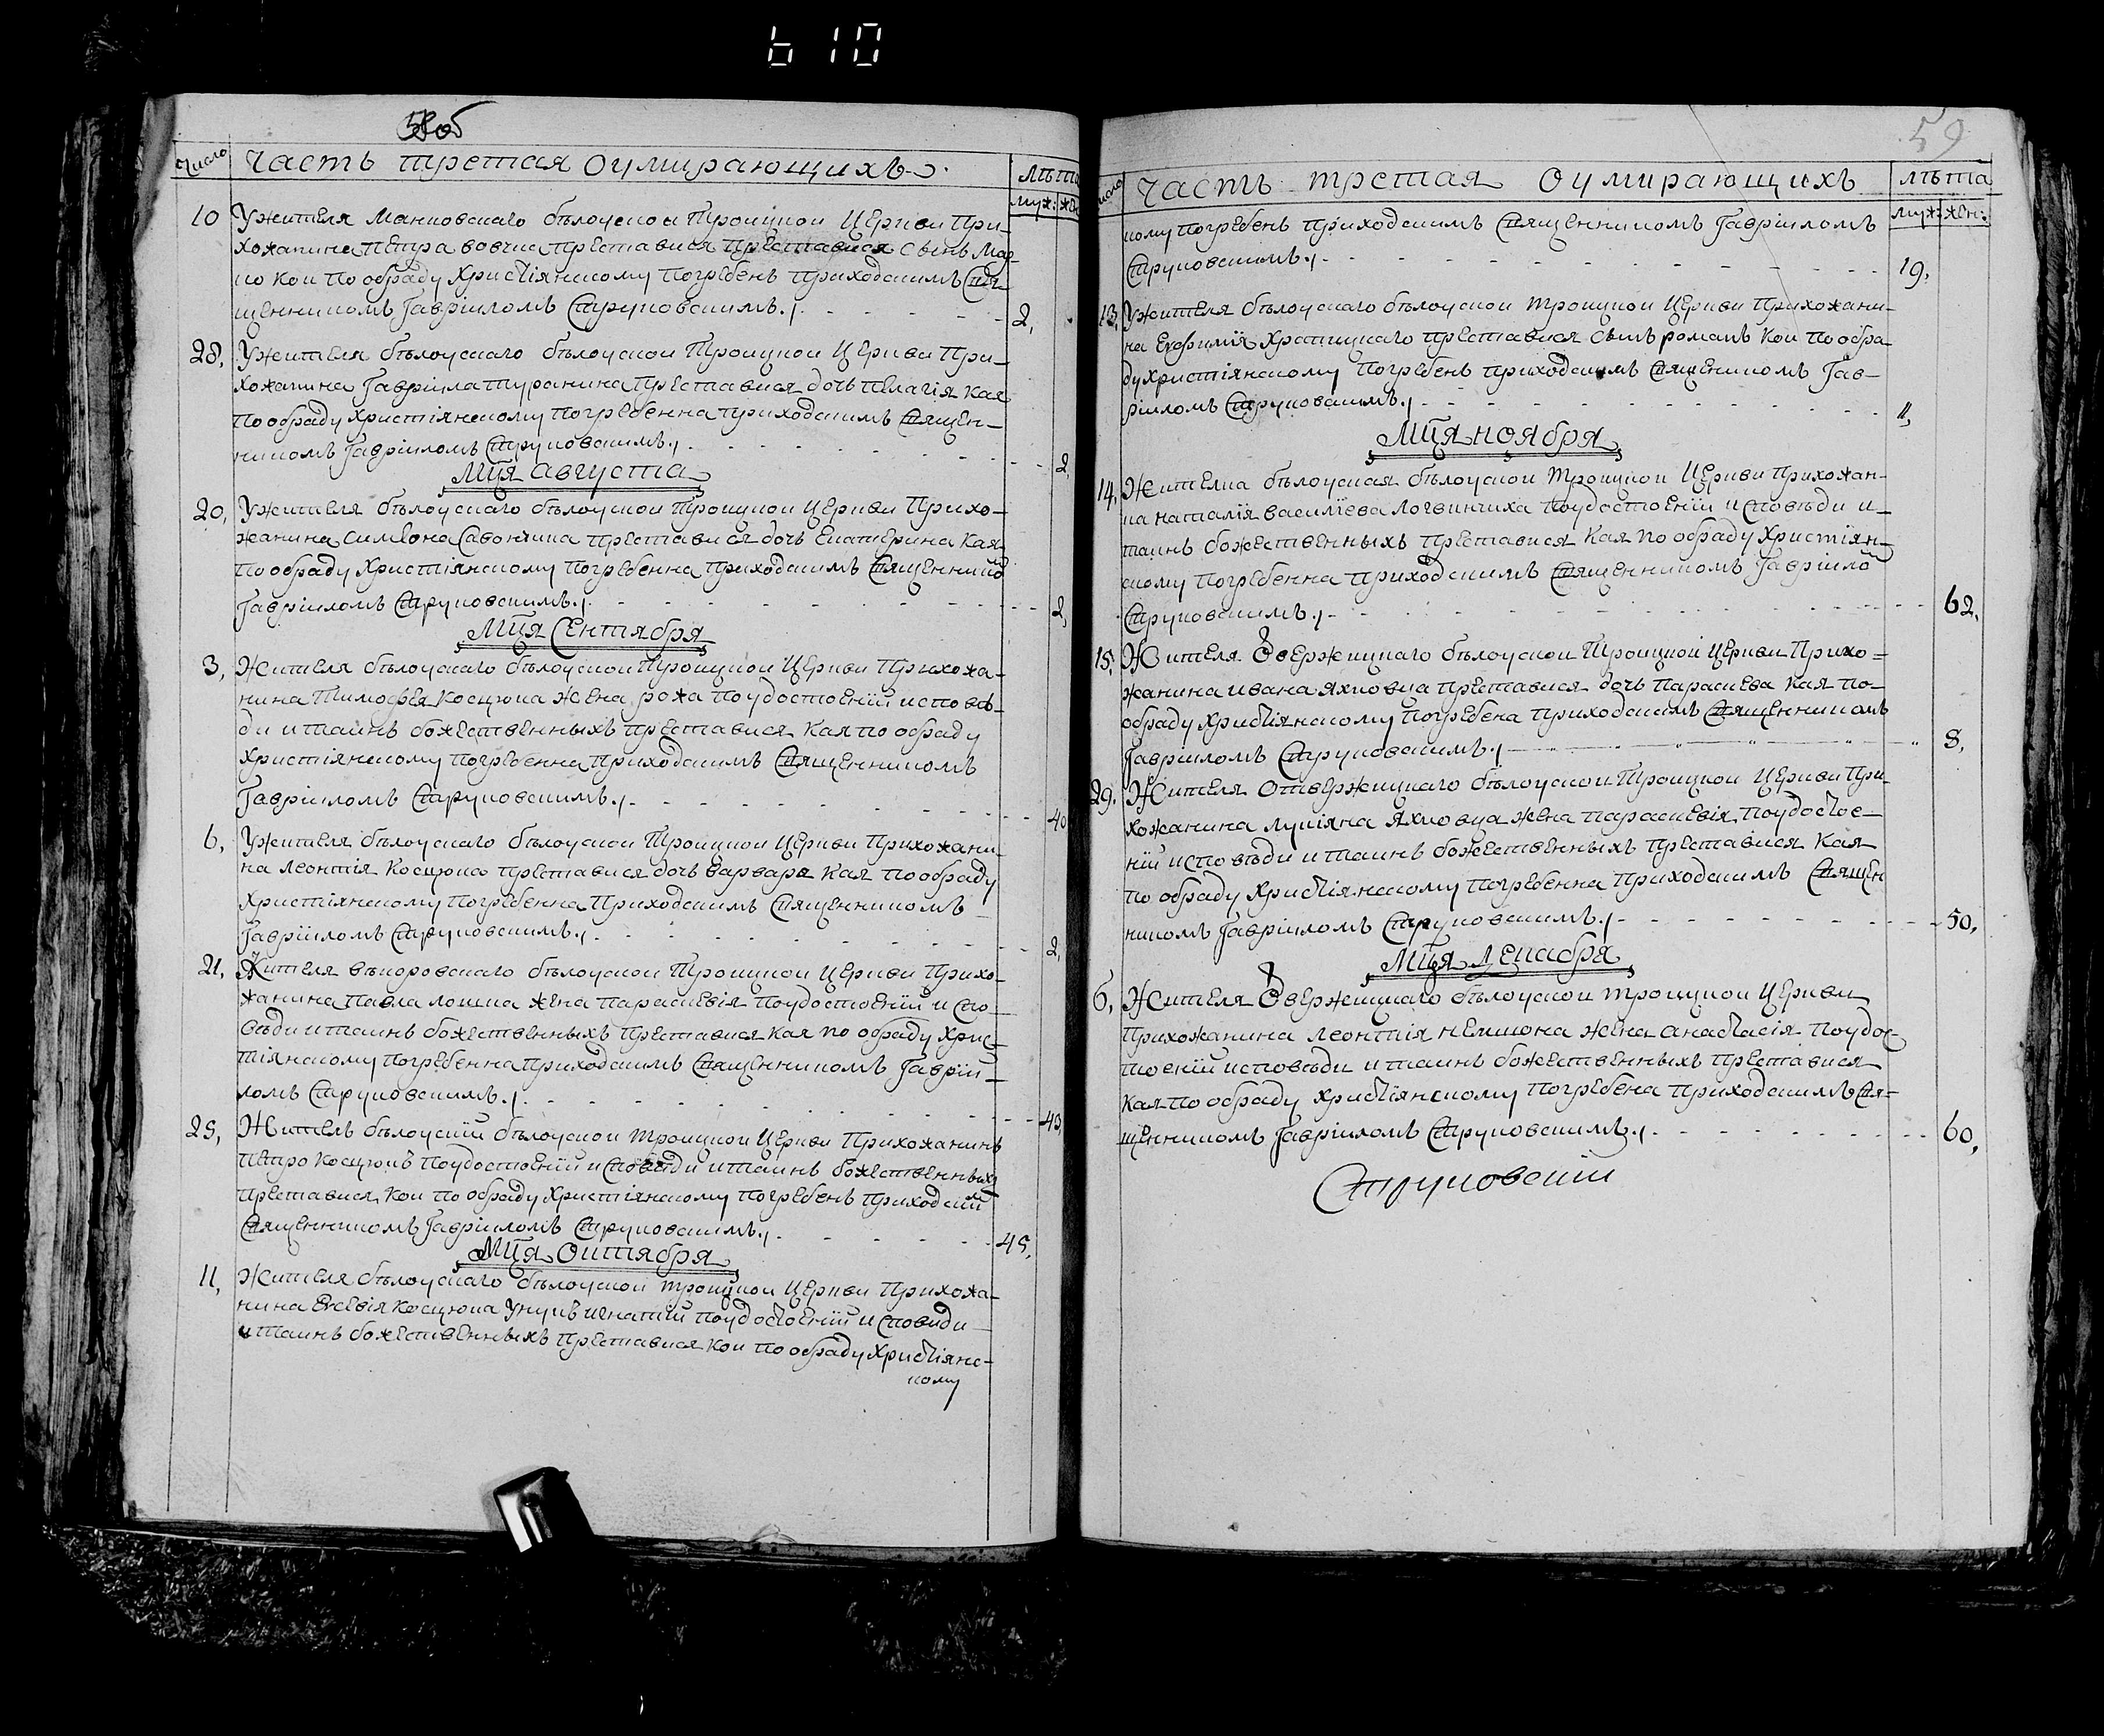 610
58 об
Число
Часть третая оумирающихъ
лѣта
муж: жен
10 У жителя Манковскаго бѣлоуской Троицкой Церкви При-
хожанина Петра вовка преставися преставися Сынъ Мар-
ко кой по обраду Христіянскому погребенъ приходскимъ Свя-
щенникомъ Гавріиломъ Струковскимъ. 2,
28, У жителя бѣлоускаго бѣлоуской Троицкой Церкви При-
хожанина Гавріила туранина преставися дочь Пелагія Кая
по обраду христіянскому погребенна приходскимъ Священ-
никомъ Гавріиломъ Струковскимъ. 2,
Мця августа
20, У жителя бѣлоускаго бѣлоуской Троицкой Церкви Прихо-
жанина Симеона Савончика преставися дочь Екатерина Кая
по обраду Христіянскому погребенна приходскимъ Священнико
Гавріиломъ Струковскимъ. 2,
Мця Сентября
3, Жителя бѣлоускаго бѣлоуской Троицкой Церкви Прихожа-
нина Тимофея Косцюка жена рожа по удостоеніи исповѣ-
ди и таинъ божественныхъ преставися Кая по обраду
Христіянскому погребенна приходскимъ Священникомъ
Гавріиломъ Струковскимъ. 40
6, У жителя бѣлоускаго бѣлоуской Троицкой Церкви Прихожани-
на Леонтія Косцюка преставися дочь Варвара Кая по обраду
Христіянскому погребенна Приходскимъ Священникомъ
Гавріиломъ Струковскимъ. 2,
21, Жителя вѣкоровскаго бѣлоуской Троицкой Церкви Прихо-
жанина Павла лошка жена Параскевія по удостоеніи испо-
вѣди и таинъ божественныхъ преставися Кая по обраду Хрис-
тіянскому погребенна приходскимъ Священникомъ Гавріи-
ломъ Струковскимъ. 43,
25, Житель бѣлоускій бѣлоуской Троицкой Церкви Прихожанинъ
Петро Косцюкъ по удостоеніи исповѣди и таинъ божественныхъ
преставися кой по обраду Христіянскому погребенъ приходским
Священникомъ Гавріиломъ Струковскимъ. 45,
Мця Октября
11, Жителя бѣлоускаго бѣлоуской Троицкой Церкви Прихожа-
нина Евсевія Косцюка Унукъ игнатій по удостоеніи исповѣди
и таинъ божественныхъ преставися кой по обраду Христіянс-
кому
59
число
Часть третая Оумирающихъ
лѣта
муж: жен:
кому погребенъ приходскимъ Священникомъ Гавріиломъ
Струковскимъ. 19,
13, У жителя бѣлоускаго бѣлоуской Троицкой Церкви Прихожани-
на Евфимія Храпицкаго преставися Сынъ романъ кой по обра
ду христіянскому погребенъ приходскимъ Священникомъ Гав-
ріиломъ Струковскимъ. 11,
Мця ноября
14, Жителка бѣлоуская бѣлоуской Троицкой Церкви Прихожан-
ка наталія василіева логвинчиха по удостоеніи исповѣди и
таинъ божественныхъ преставися Кая по обраду Христіян-
скому погребенна приходскимъ Священникомъ Гавріило
Струковскимъ. 62,
15, Жителя Отвержицкаго бѣлоуской Троицкой Церкви Прихо=
жанина ивана Яхновца преставися дочь Параскева Кая по
обраду Христіянскому погребена приходскимъ Священникомъ
Гавріиломъ Струковскимъ. 8,
29, Жителя Отвержицкаго бѣлоуской Троицкой Церкви При-
хожанина лукіяна Яхновца жена параскевія, по удостое-
ніи исповѣди и таинъ божественныхъ преставися Кая
по обраду Христіянскому погребенна приходскимъ Священ
никомъ Гавріиломъ Струковскимъ. 50,
Мця Декабря
6, Жителя Отвержицкаго бѣлоуской Троицкой Церкви
Прихожанина Леонтія немшона жена анастасія по удос-
тоеніи исповѣди и таинъ божественныхъ преставися
Кая по обраду Христіянскому погребена приходскимъ Свя=
щенникомъ Гавріиломъ Струковскимъ. 60,
Струковскій